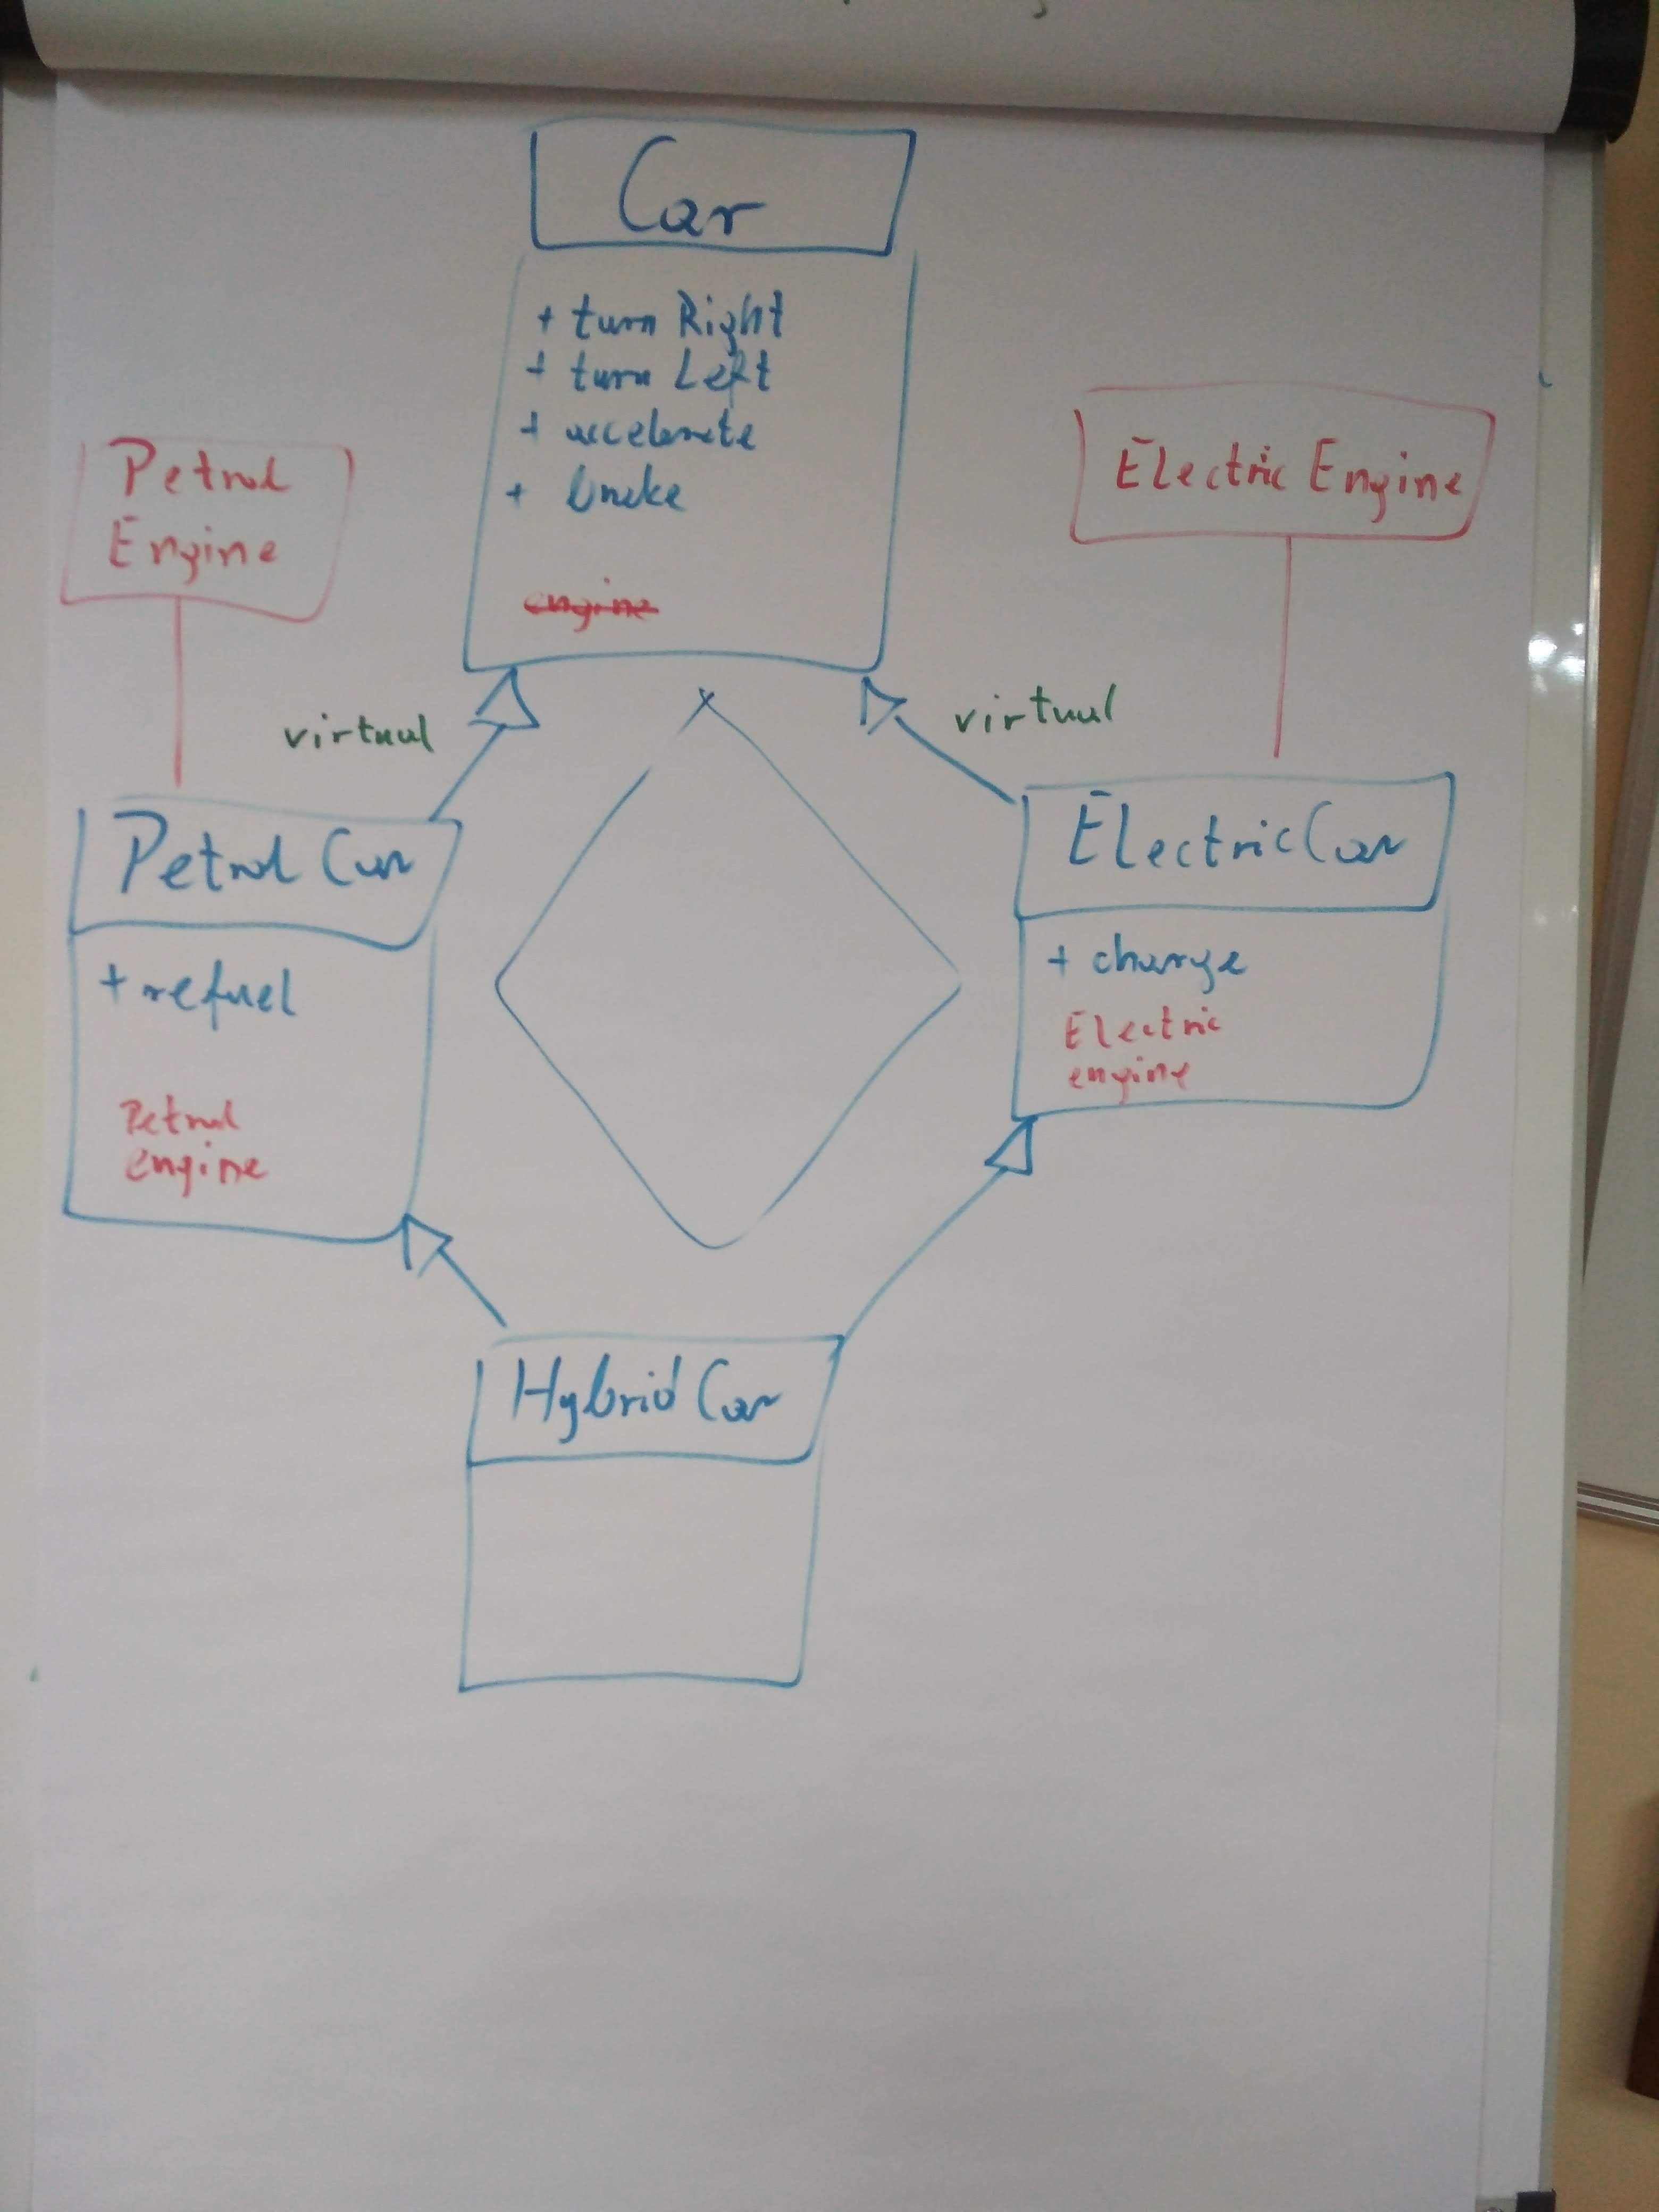 Car
+ turn Right
+ turn Left
+ accelerate
+ brake
engine
Petrol
Engine
Electric Engine
virtual
virtual
Petrol Car
+ refuel
Petrol
engine
ElectricCar
+ charge
Electric
engine
Hybrid Car